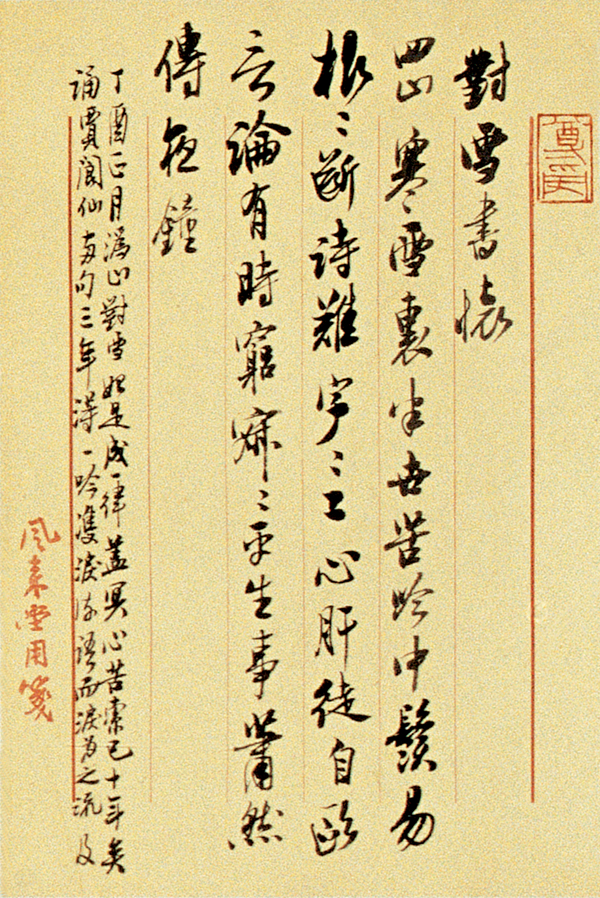 對雪書懷
四山寒雪裏半世苦吟中鬚易
根〻斷詩難字〻工心肝徒自歐
言論有時窮寂〻平生事蕭然
傳夜鐘
丁酉正月溈山對雪如是成一律蓋冥心苦索已十年矣
誦賈閬仙兩句三年得一吟雙淚流語而淚為之流及
風來堂用箋